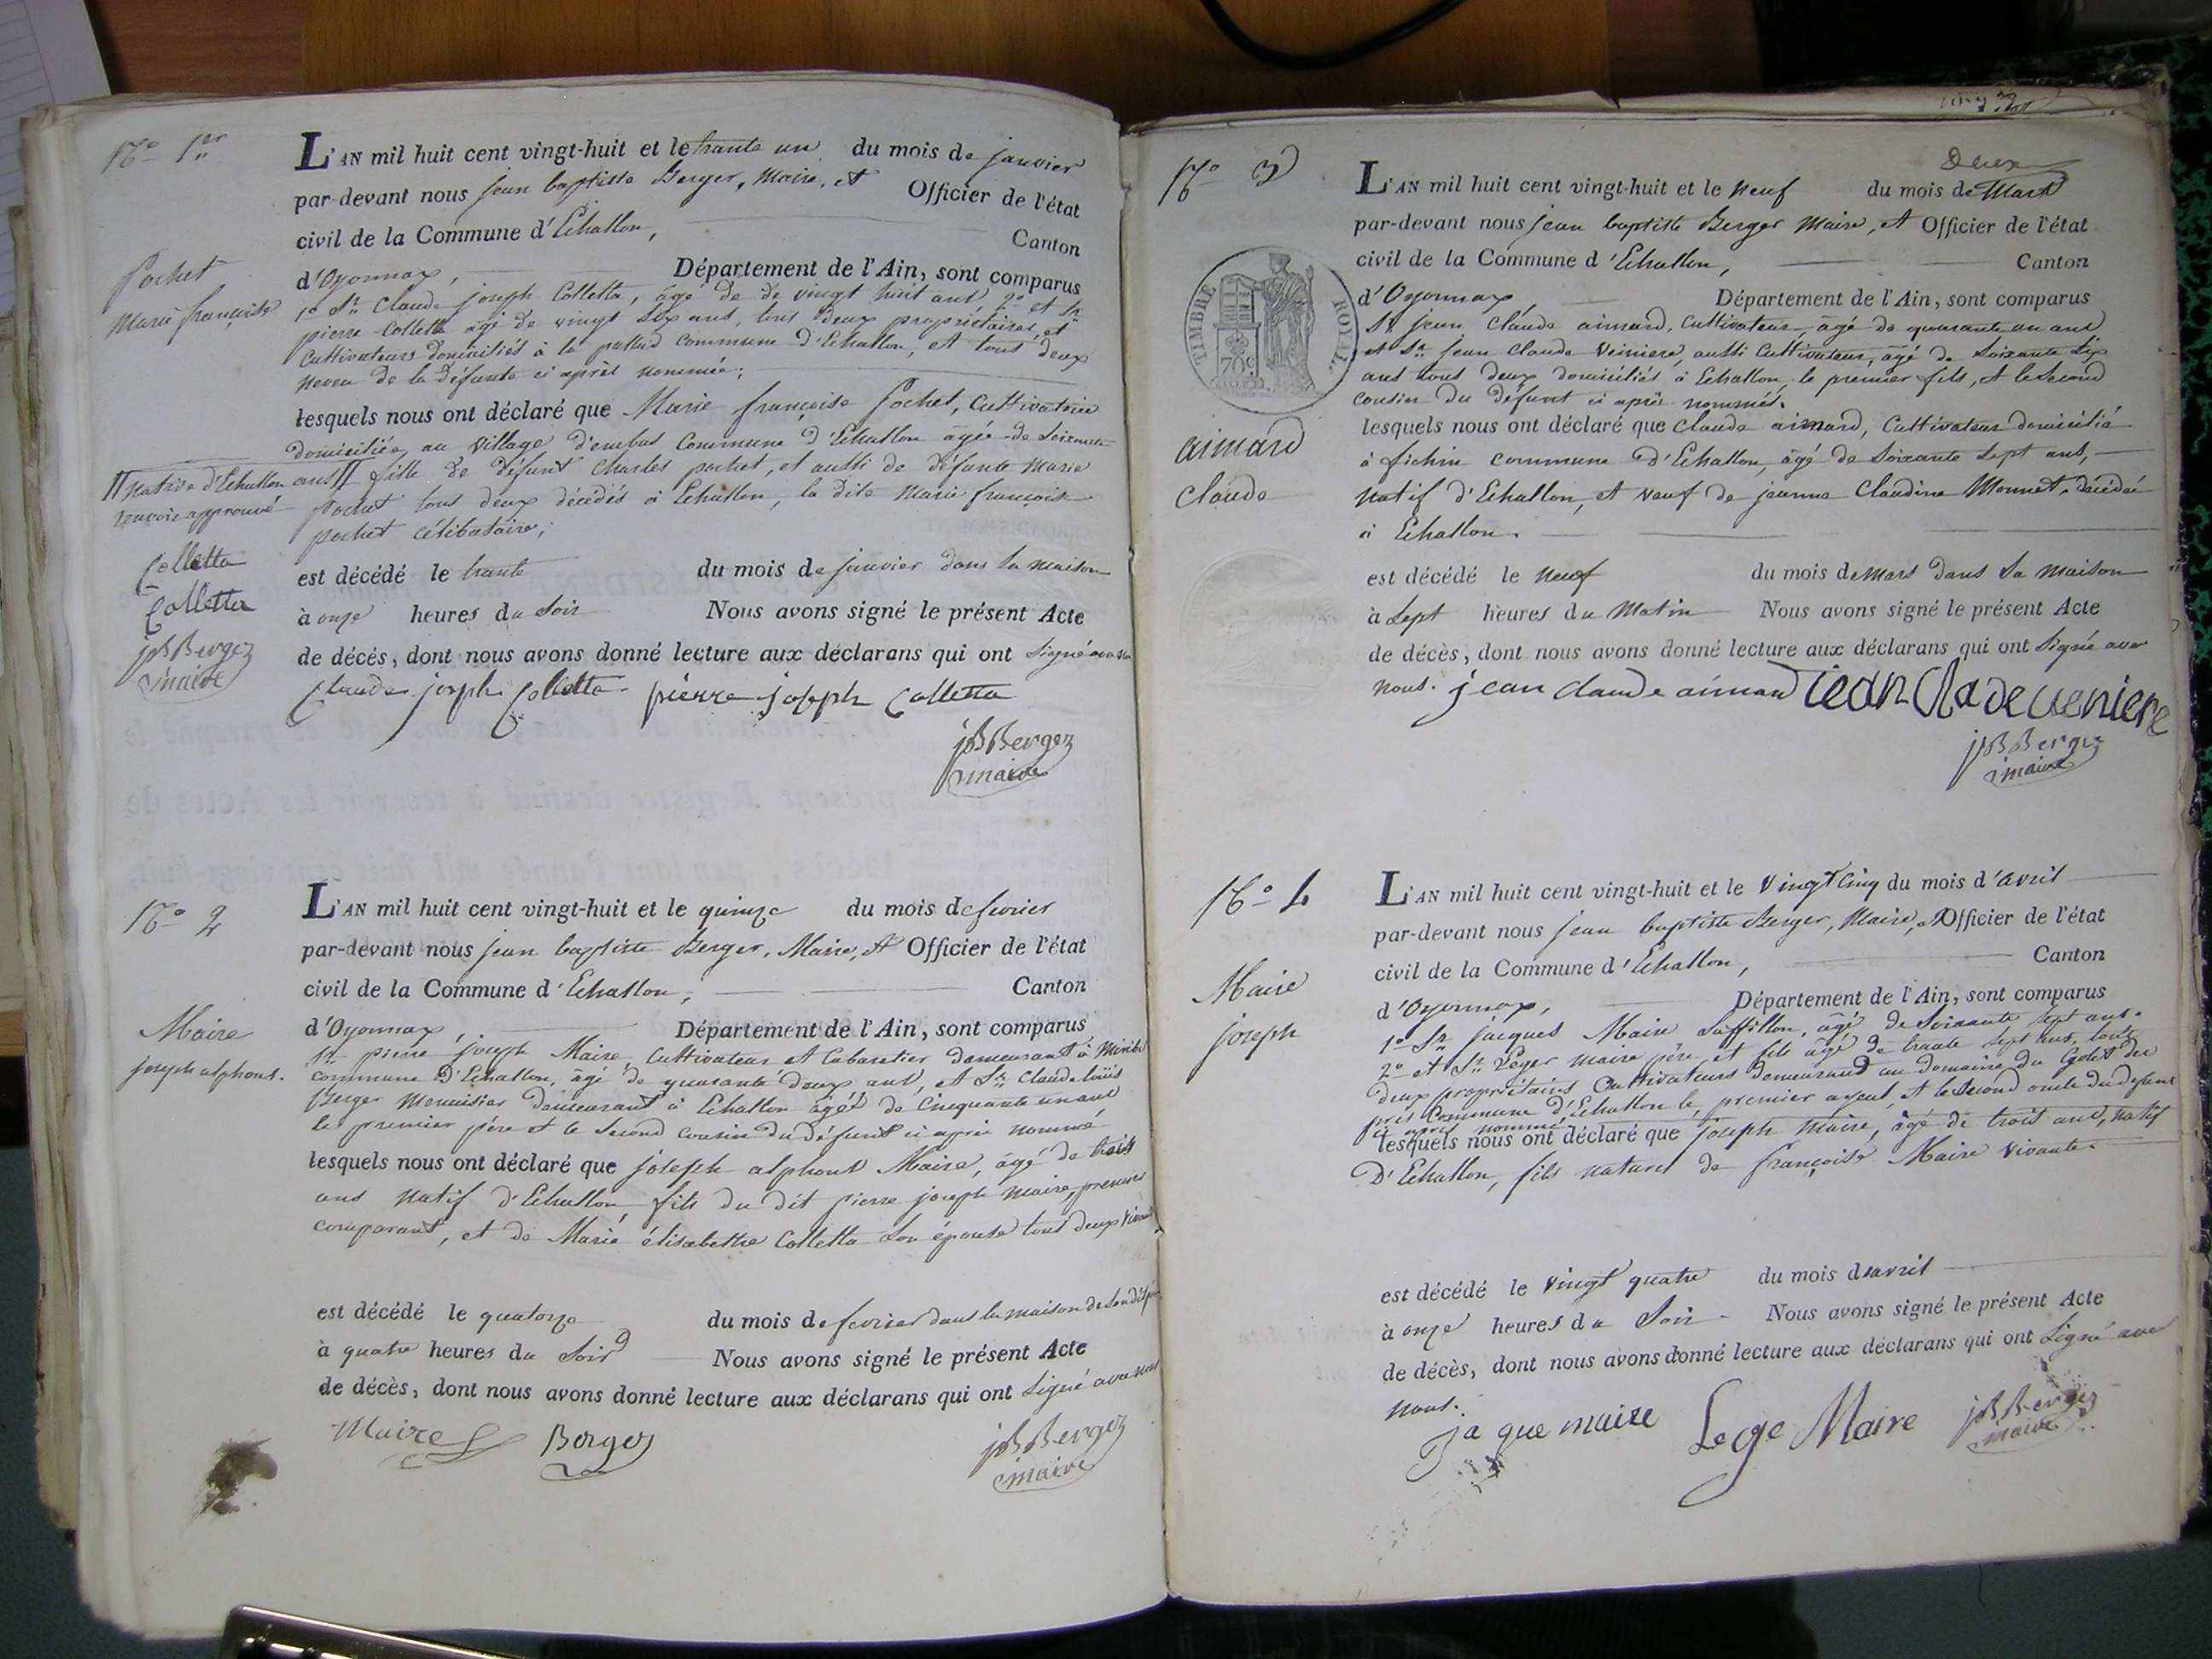 N° 1er
L'AN mil huit cent vingt-huit et le trante un du mois de janvier
par-devant nous jean baptiste Berger, Maire, et Officier de l'état
civil de la Commune d'Echallon, Canton
d'Oyonnax, Département de l'Ain, sont comparus
Pochet
Marie françoise
1° Sr Claude joseph Colletta, âgé de de vingt huit ans 2° et Sr
pierre Colletta âgé de vingt six ans, tous deux propriétaires, et
Cultivateurs domiciliés à la pallud commune d'Echallon, et tous deux
neveu de la défunte ci après nommée;
lesquels nous ont déclaré que Marie françoise Pochet, Cultivatrice
domiciliée au village d'embas Commune d'Echallon âgée de Soixante
ans // fille de défunt Charles pochet, et aussi de défunte Marie
// native d'Echallon
renvoie approuvé
Pochet tous deux décédés à Echallon, la dite Marie françoise
pochet célibataire;
Colletta
Colletta
jBBerger
maire
est décédé le trante du mois de janvier dans sa maison
à onze heures du Soir Nous avons signé le présent Acte
de décés, dont nous avons donné lecture aux déclarans qui ont Signé avec nous
Claude joseph Colletta pierre joseph Colletta
jBBerger
maire
N° 2
L'AN mil huit cent vingt-huit et le quinze du mois de fevrier
par-devant nous jean baptiste Berger, Maire, et Officier de l'état
civil de la Commune d'Echallon, Canton
d'Oyonnax, Département de l'Ain, sont comparus
Maire
joseph alphons.
Sr pierre joseph Maire, Cultivateur et Cabaretier demeurant à
commune d'Echallon, âgé de quarante deux ans, et Sr Claude loüis
Berger Menuisier demeurant à Echallon âgé de Cinquante un ans
le premier père et le Second cousin du défunt ci après nommé
lesquels nous ont déclaré que joseph alphons Maire, âgé de trois
ans natif d'Echallon, fils du dit pierre joseph Maire, premier
comparant, et de Marie élisabethe Colletta Son épouse tous deux
est décédé le quatorze du mois de fevrier dans la maison de son dit
à quatre heures du Soir Nous avons signé le présent Acte
de décès, dont nous avons donné lecture aux déclarans qui ont Signé avec nous
Maire Berger
jBBerger
maire
Deux
N° 3
L'AN mil huit cent vingt-huit et le neuf du mois de Mars
par-devant nous jean baptiste Berger Maire, et Officier de l'état
civil de la Commune d'Echallon, Canton
d'Oyonnax, Département de l'Ain, sont comparus
TIMBRE ROYAL
70c
Sr jean Claude aimard, Cultivateur, âgé de quarante un ans
et Sr jean Claude Veiniere, aussi Cultivateur, âgé de Soixante Six
ans tous deux domiciliés à Echallon, le premier fils, et le Second
cousin du défunt ci après nommés.
aimard
Claude
lesquels nous ont déclaré que Claude aimard, Cultivateur domicilié
à fichin commune d'Echallon, âgé de Soixante Sept ans,
natif d'Echallon, et veuf de jeanne Claudine Monnet, décédée
à Echallon.
est décédé le neuf du mois de Mars dans Sa maison
à Sept heures du Matin Nous avons signé le présent Acte
de décès, dont nous avons donné lecture aux déclarans qui ont Signé avec
nous. jean claude aimard
jBBerger
maire
N° 4
L'AN mil huit cent vingt-huit et le vingt Cinq du mois d'avril
par-devant nous jean baptiste Berger, Maire, et Officier de l'état
civil de la Commune d'Echallon, Canton
d'Oyonnax, Département de l'Ain, sont comparus
Maire
joseph
1° Sr jacques Maire Saffillon, âgé de Soixante Sept ans.
2° et Sr Léger Maire père et fils âgé de trante Sept ans, tous
deux propriétaires Cultivateurs demeurant au domaine du Golet des
près Commune d'Echallon le premier ayeul, et le Second oncle du defunt
ci après nommé
lesquels nous ont déclaré que joseph Maire, âgé de trois ans, natif
D'Echallon, fils naturel de françoise Maire vivante.
est décédé le vingt quatre du mois d'avril
à onze heures du Soir Nous avons signé le présent Acte
de décès, dont nous avons donné lecture aux déclarans qui ont Signé avec
nous.
Ja que maire Lege Maire jBBerger
maire